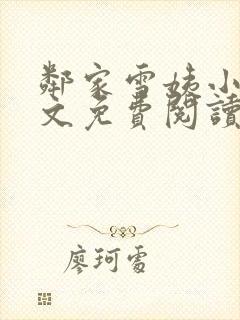 鄰家雪姨小
文免費閱讀
廖珂雪